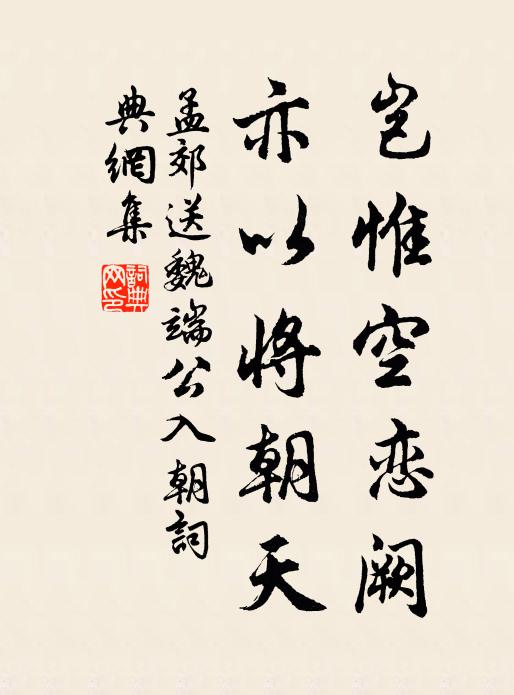 岂惟空恋阙
亦以将朝天
孟郊送魏端公入朝詞
典網集
詞典网印